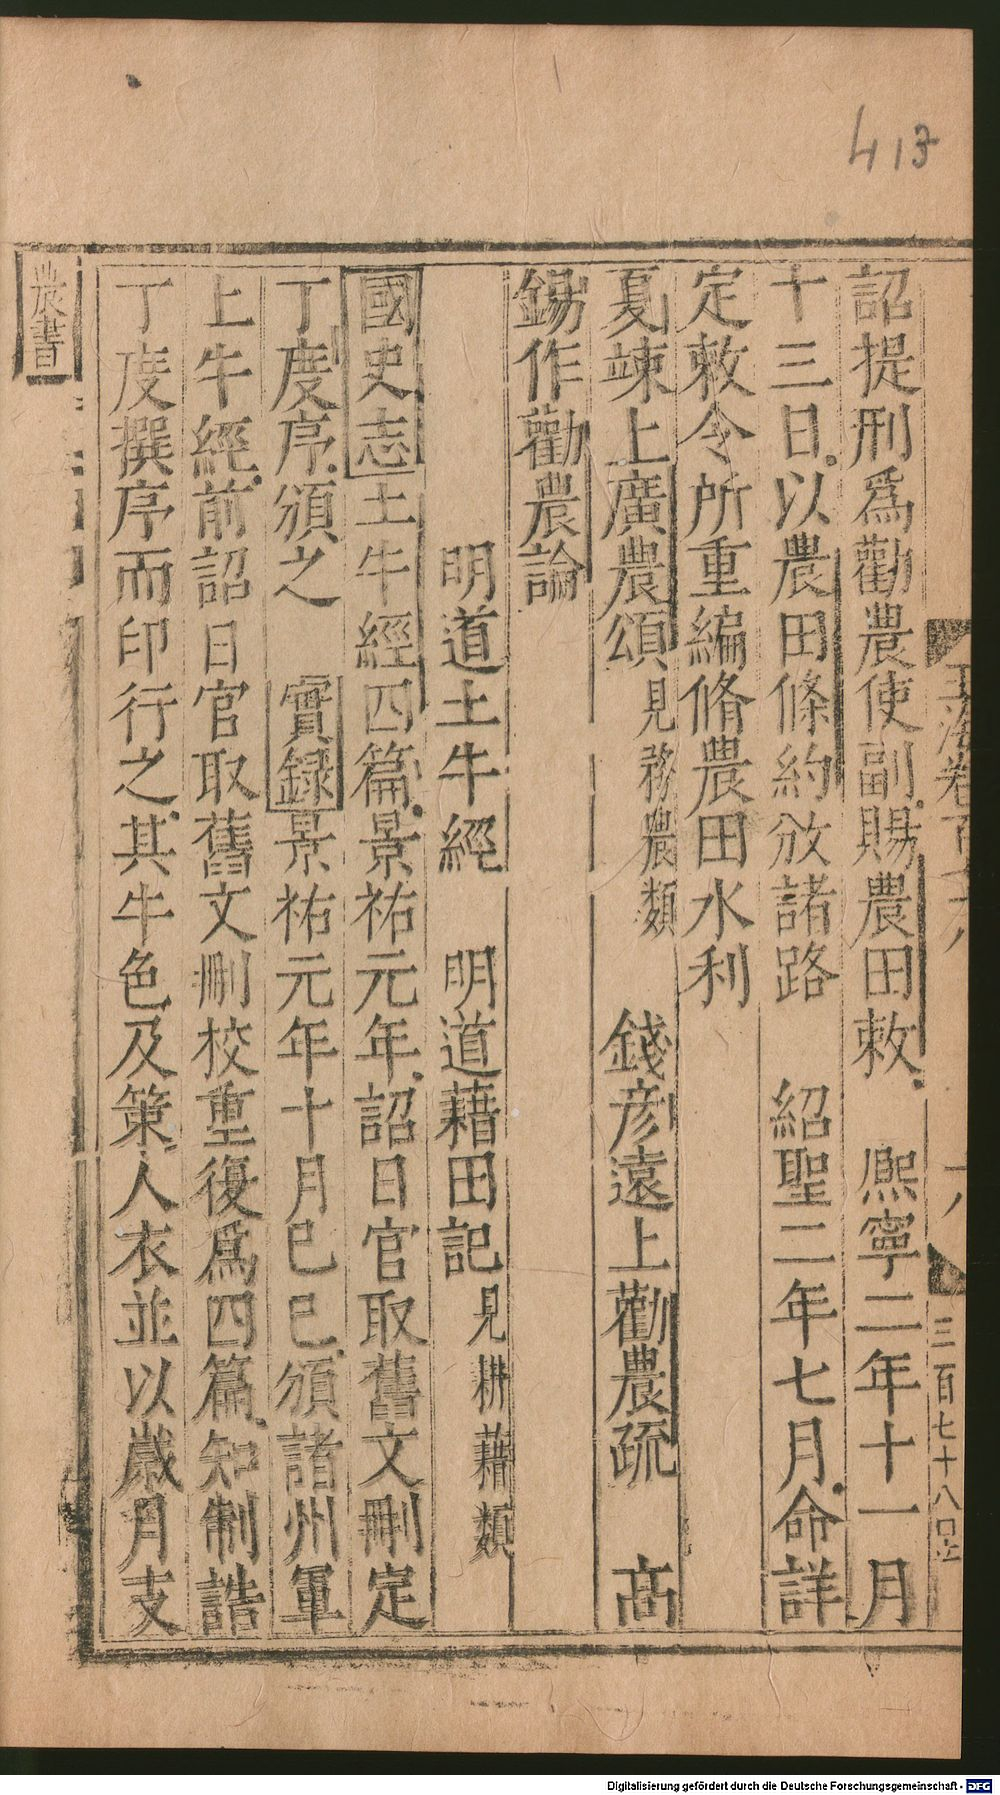 413
詔提刑爲勸農使副賜農田敕　熈寧二年十一月
十三日以農田條約頒諸路　紹聖二年七月命詳
定敕令所重編脩農田水利
夏竦上廣農頌見務農類　錢彦遠上勸農疏　高
錫作勸農論
明道土牛經　明道藉田記見耕藉類
國史志土牛經四篇景祐元年詔日官取舊文刪定
丁度序頒之　實録景祐元年十月已巳頒諸州軍
上牛經前詔日官取舊文刪校重復爲四篇知制誥
丁度撰序而印行之其牛色及策人衣並以歳月支
農書
玉海卷百七十八
三百七十八
Digitalisierung gefördert durch die Deutsche Forschungsgemeinschaft - DFG